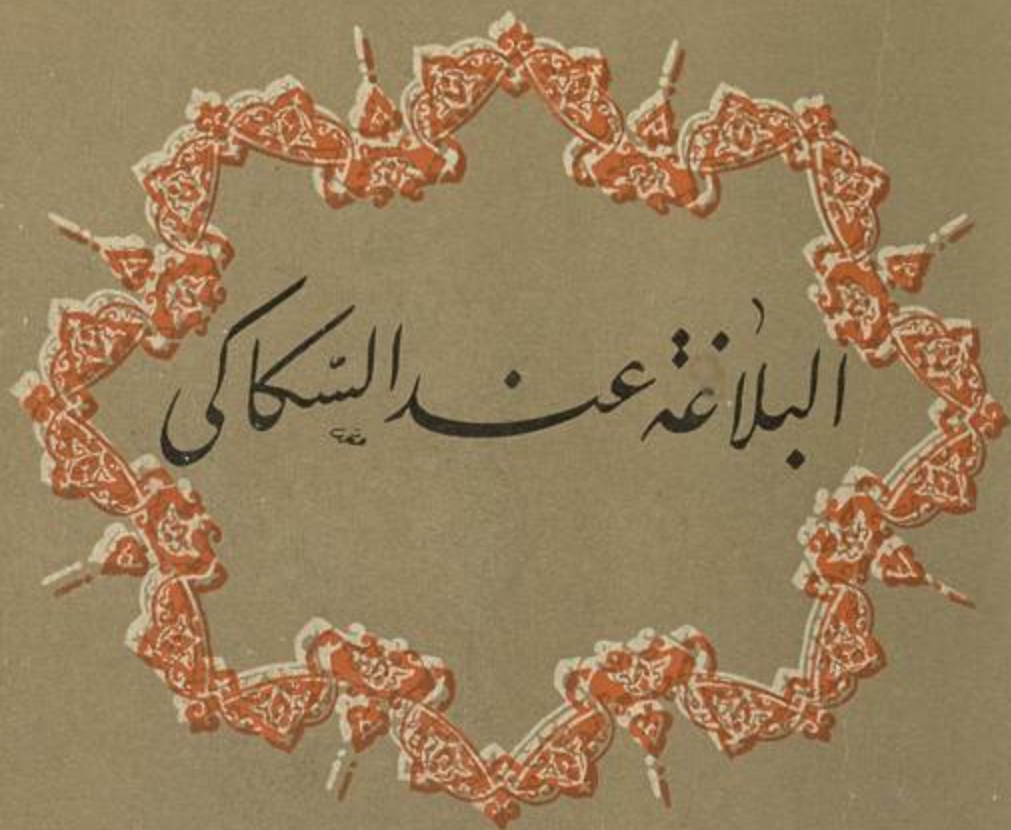 البلاغة عند السّكاكي